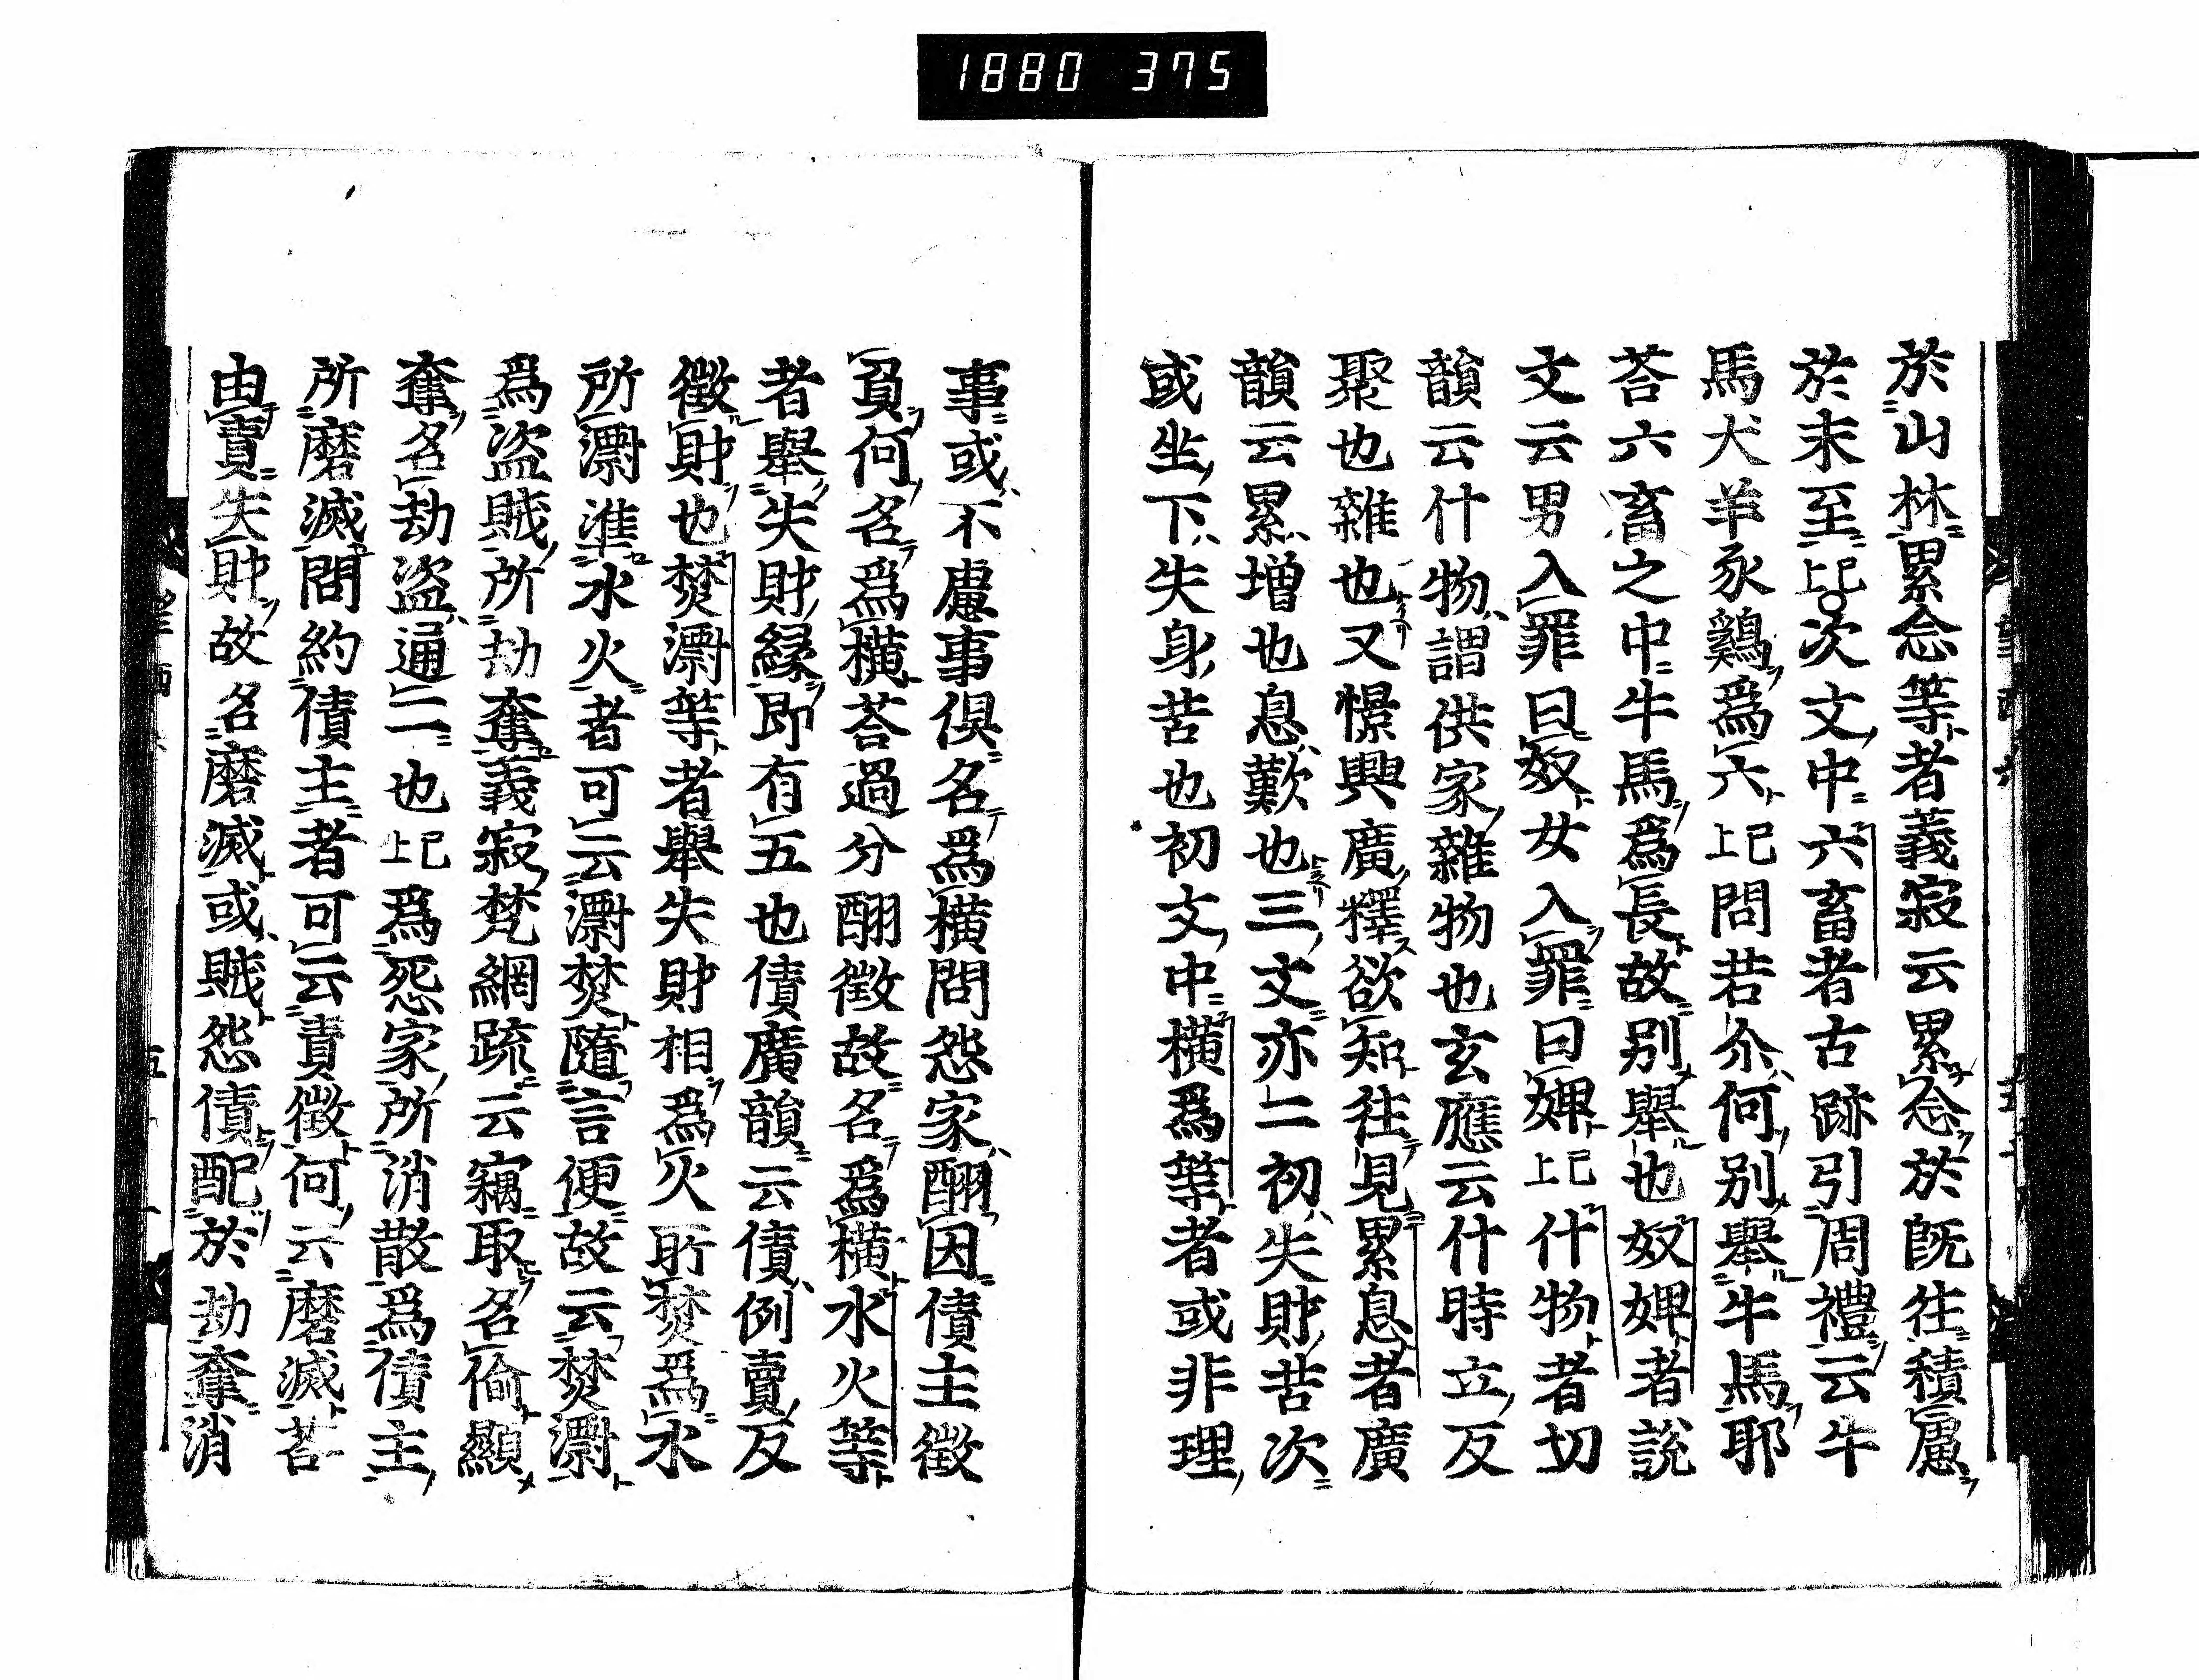 1880 375
於山林累念等者義寂云累念於既往積慮
於末至已上○次文中六畜者古跡引周禮云牛
馬犬羊豕鷄爲六已上問若尒何別擧牛馬耶
荅六畜之中牛馬爲長故別擧也奴婢者說
文云男入罪曰奴女入罪曰婢已上什物者切
韻云什物謂供家雜物也玄應云什時立反
聚也雜也又憬興廣釋欲知往見累息者廣
韻云累增也息歎也三文亦二初失財苦次
或坐下失身苦也初文中橫爲等者或非理
事或不慮事俱名爲橫問怨家酬因債主徵
負何名爲橫荅過分酬徵故名爲橫水火等
者擧失財緣即有五也債廣韻云債例賣反
徵財也焚漂等者擧失財相爲火所焚爲水
所漂准水火者可云漂焚隨言便故云焚漂
爲盜賊所劫奪義寂梵網疏云竊取名偷顯
奪名劫盜通二也已上爲怨家所消散爲債主
所磨滅問約債主者可云責徵何云磨滅荅
由責失財故名磨滅或賊怨債配於劫奪消